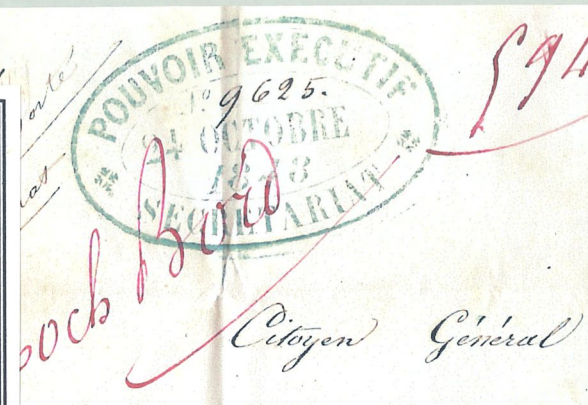 POUVOIR EXECUTIF
N° 9625.
24 OCTOBRE
1848
SECRETARIAT
594
Citoyen Général